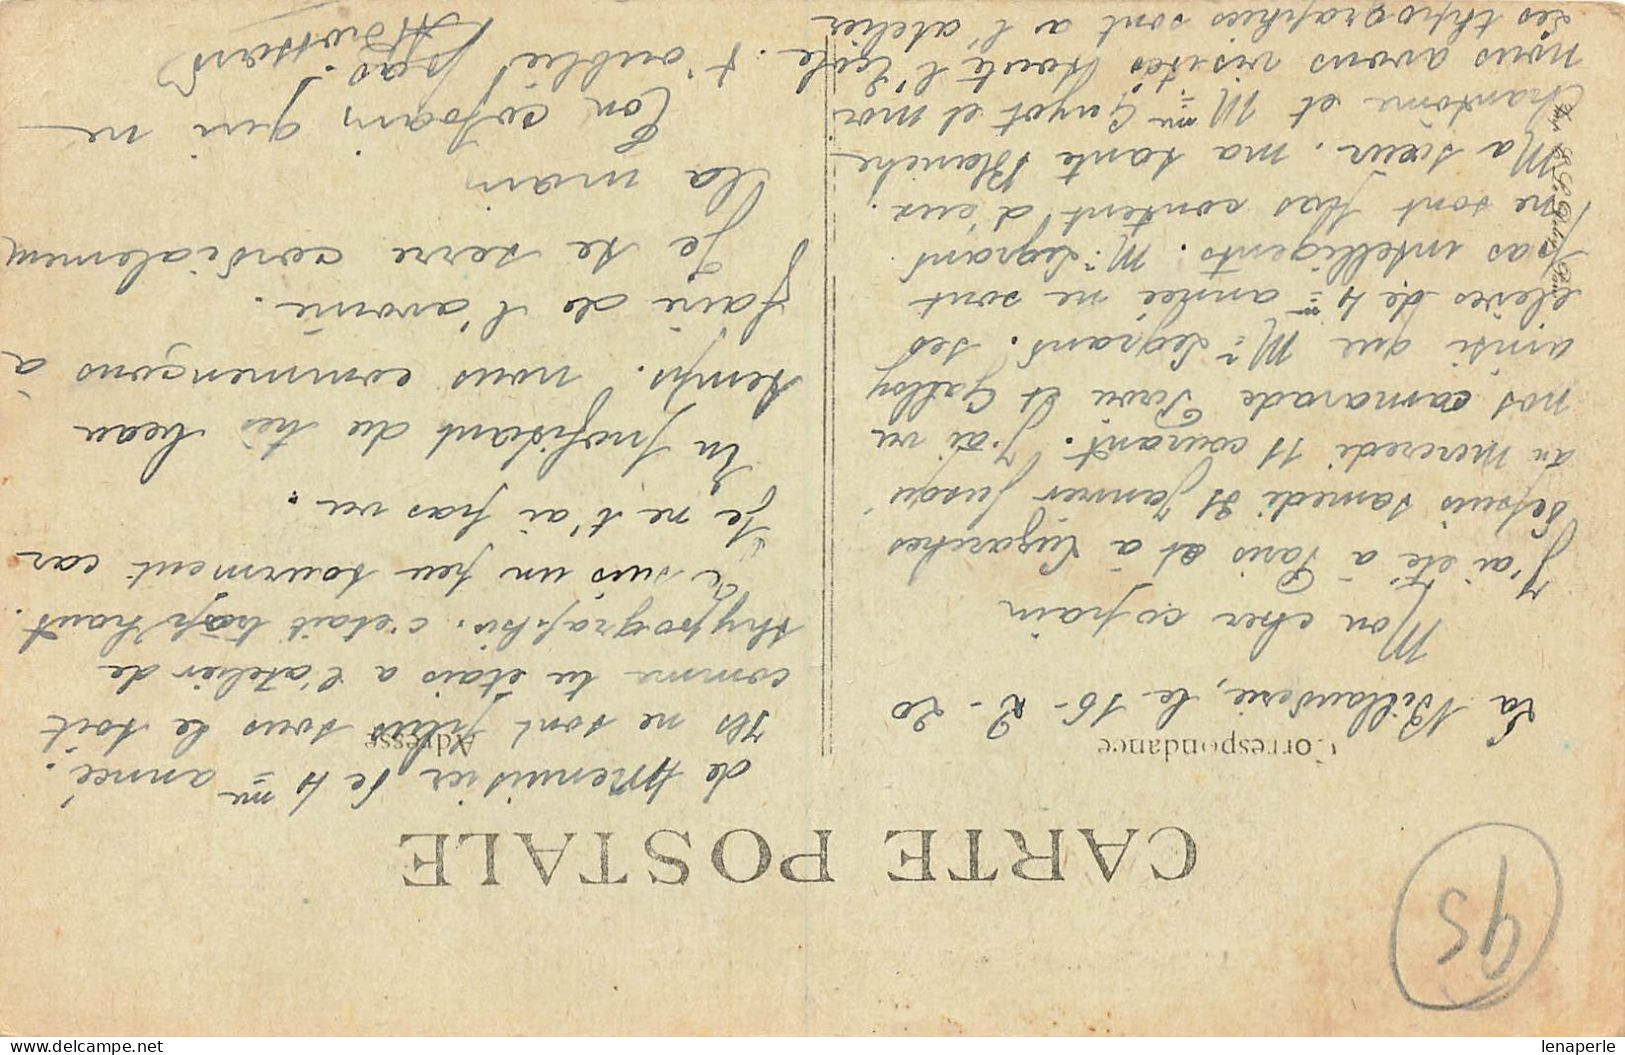 CARTE POSTALE
Correspondance
La Billauderie, le 16-2-20
Mon cher copain
J'ai été à Paris et à Luzarches
depuis samedi 31 Janvier jusqu'
au mercredi 11 courant. J'ai vu
nos camarade Pirou et Galloy
ainsi que Mr Legrand. ses
elèves de 4me année ne sont
pas intelligents. Mr Legrand
ne sont pas content d'eux.
Ma sœur. ma tante Blanche
Chantôme et Mme Guyot et moi
nous avons visités toute l'Ecole.
Les thypographes sont a l'atelier
Adresse
de Menuisier de 4me année.
Ils ne sont plus sous le toit
comme tu étais a l'atelier de
thypographie. c'était trop haut.
Je suis un peu tourment car
Je ne t'ai pas vu.
En profitant du très beau
temps. nous commençons à
faire de l'avoine.
Je te serre cordialement
la main
Ton copain qui ne
t'oublie pas!
95
lenaperle